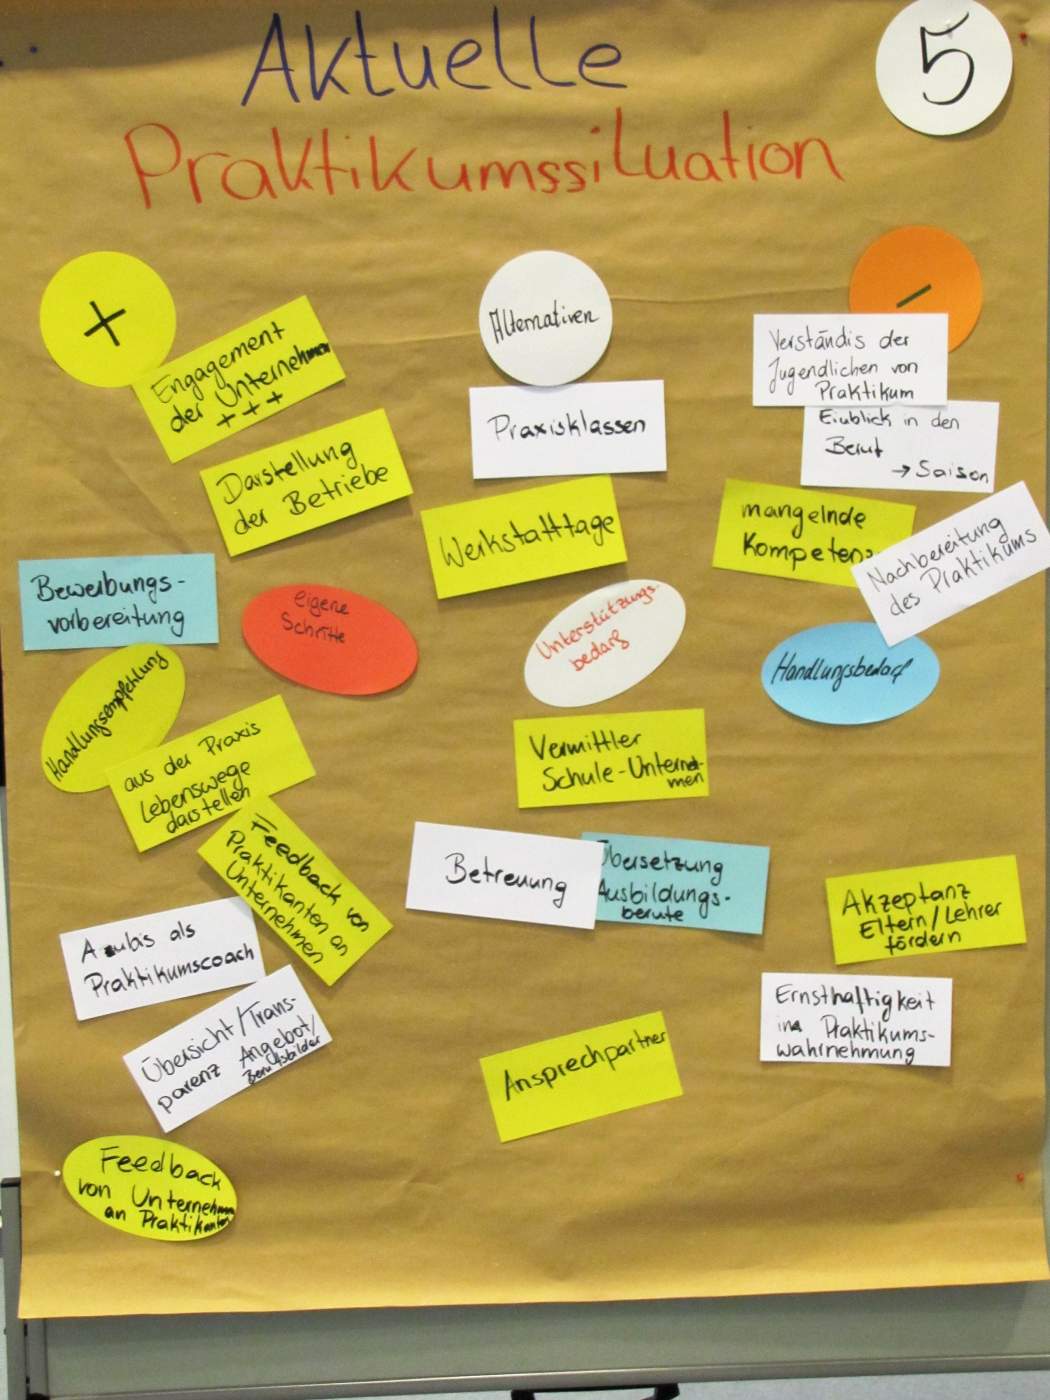 Aktuelle
Praktikumssituation
5
+
Engagement
der Unternehmen
+ + +
Darstellung
der Betriebe
Alternativen
Praxisklassen
Werkstatttage
–
Verständis der
Jugendlichen von
Praktikum
Einblick in den
Beruf
→ Saison
mangelnde
Kompetenz
Nachbereitung
des Praktikums
Bewerbungs-
vorbereitung
eigene
Schritte
Unterstützungs-
bedarf
Handlungsbedarf
Handlungsempfehlung
aus der Praxis
Lebenswege
darstellen
Feedback von
Praktikanten an
Unternehmen
Azubis als
Praktikumscoach
Übersicht/Trans-
parenz Angebot/
Berufsbilder
Feedback
von Unternehmen
an Praktikanten
Vermittler
Schule-Unterneh-
men
Betreuung
Übersetzung
Ausbildungs-
berufe
Ansprechpartner
Akzeptanz
Eltern/Lehrer
fördern
Ernsthaftigkeit
in Praktikums-
wahrnehmung